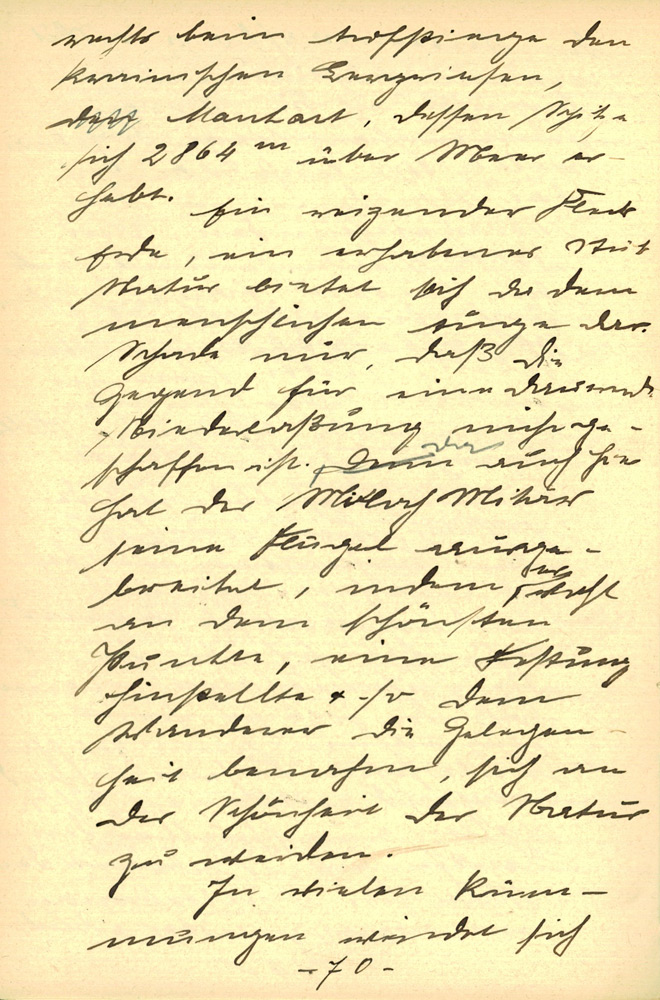 rechts beim Aufstiege den
krainischen Bergriesen,
den Manhart, dessen Spitze
sich 2864 m über Meer er-
hebt. Ein reizender Fleck
Erde, ein erhabenes Stück
Natur bietet sich da dem
menschlichen Auge dar.
Schade nur, daß die
Gegend für eine dauernde
Niederlaßung nicht ge-
schaffen ist. Denn auch hier
hat der Moloch Militär
seine Flügel ausge-
breitet, indem er
an dem schönsten
Punkte, eine Festung
hinstellte & so dem
Wanderer die Gelegen-
heit benahm, sich an
der Schönheit der Natur
zu weiden.
In vielen Krüm-
mungen windet sich
- 70 -